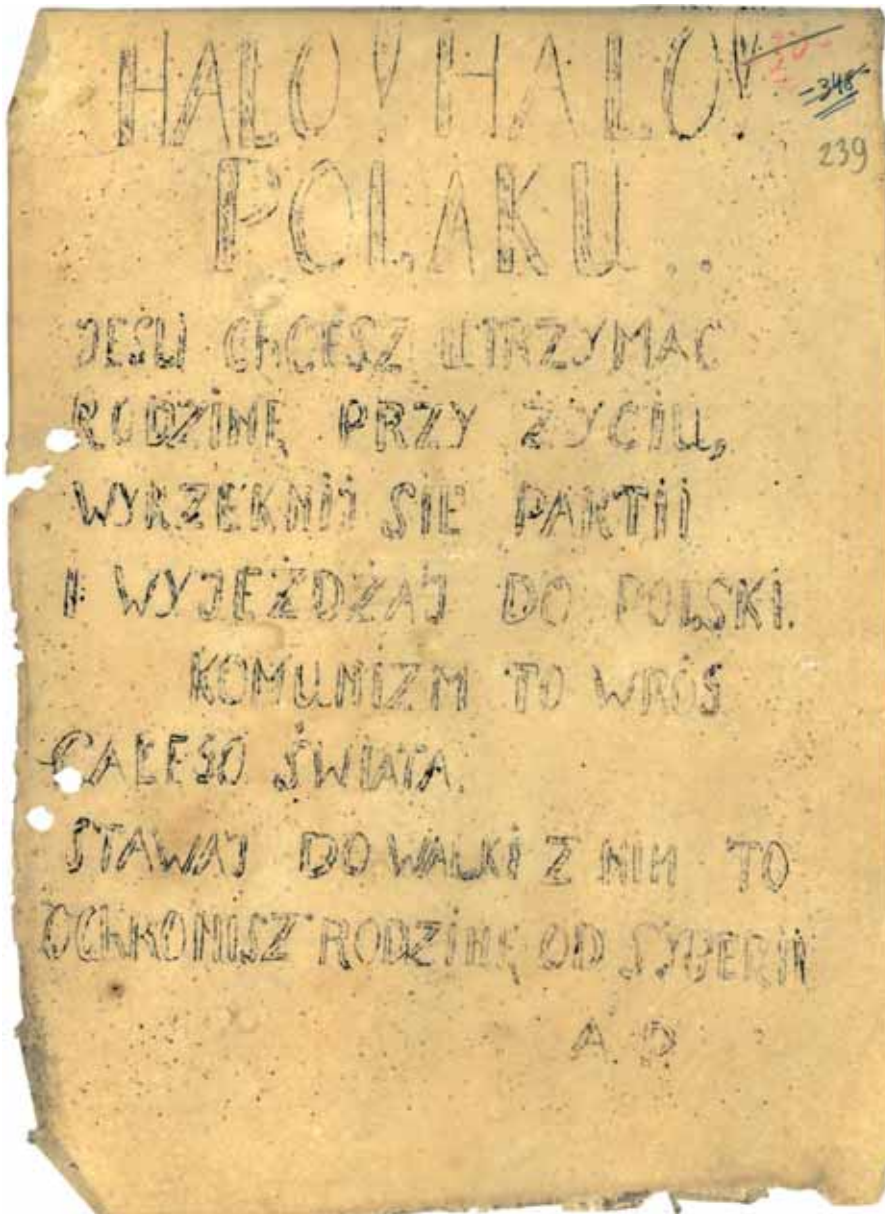 HALO! HALO!
-348-
239
POLAKU..
JEŚLI CHCESZ UTRZYMAC
RODZINĘ PRZY ŻYCIU,
WYRZEKNIJ SIĘ PARTII
I WYJEŻDŻAJ DO POLSKI.
KOMUNIZM TO WRÓG
CAŁEGO ŚWIATA.
STAWAJ DO WALKI Z NIM TO
OCHRONISZ RODZINĘ OD SYBERII
A.D